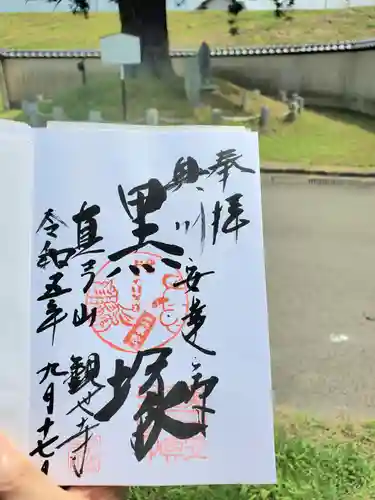 奉拝
奥州安達原
黒塚
真弓山観世寺
令和五年九月十七日